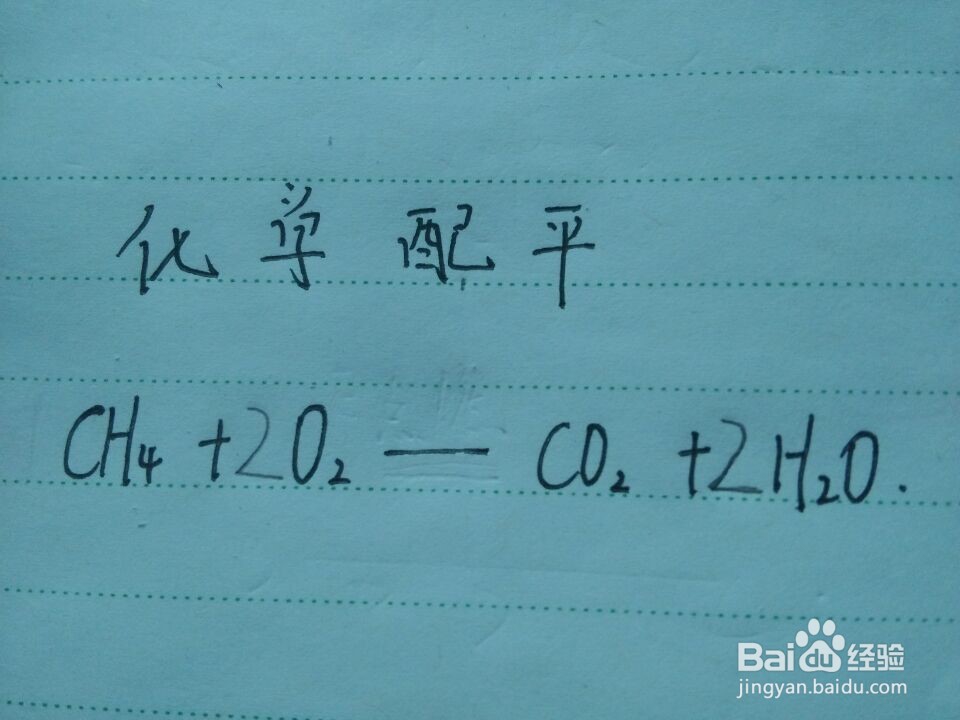 化学配平
CH₄ +2O₂ — CO₂ +2H₂O.
Bai du 经验
jingyan.baidu.com